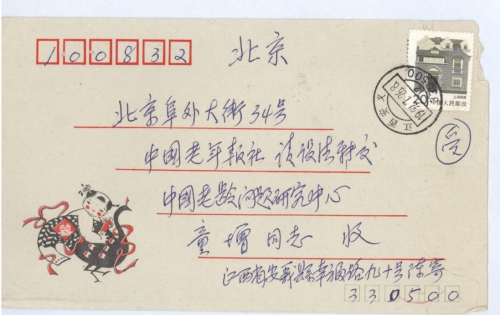 100832
北京
北京阜外大街34号
中国老年报社 请设法转交
中国老龄问题研究中心
童增同志 收
江西省安义县幸福路九十号陈寄
330500
江西安义
中国人民邮政